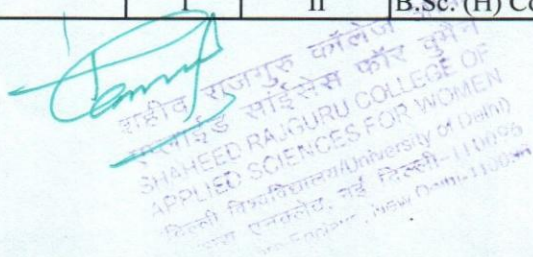 I II B.Sc. (H) Co
शहीद राजगुरु कॉलेज
एप्लाईड साईंसेस फॉर वुमैन
SHAHEED RAJGURU COLLEGE OF
APPLIED SCIENCES FOR WOMEN
दिल्ली विश्वविद्यालय/University of Delhi)
एनक्लेव, नई दिल्ली-110096
Enclave, New Delhi-110096